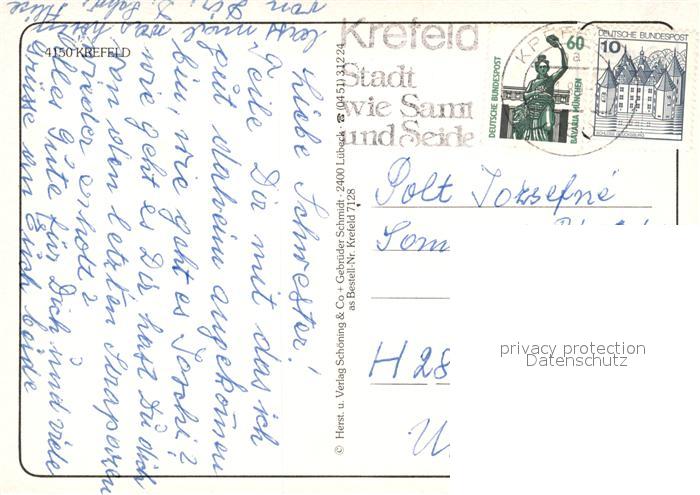 4150 KREFELD
Liebe Schwester!
Teile Dir mit das ich
gut daheim angekommen
bin, wie geht es Joschi?
wie geht es Dir hast Du dich
von den letzten Strapazen
wieder erholt?
Alles Gute für Dich und viele
Grüsse an Euch beide
von Dir
© Herst. u. Verlag Schöning & Co + Gebrüder Schmidt · 2400 Lübeck · ☎ (0451) 31224
as Bestell-Nr. Krefeld 7128
Krefeld
Stadt
wie Samt
und Seide
DEUTSCHE BUNDESPOST
60
BAVARIA MÜNCHEN
DEUTSCHE BUNDESPOST
10
Polt Jozsefné
Som
H 28
U
privacy protection
Datenschutz